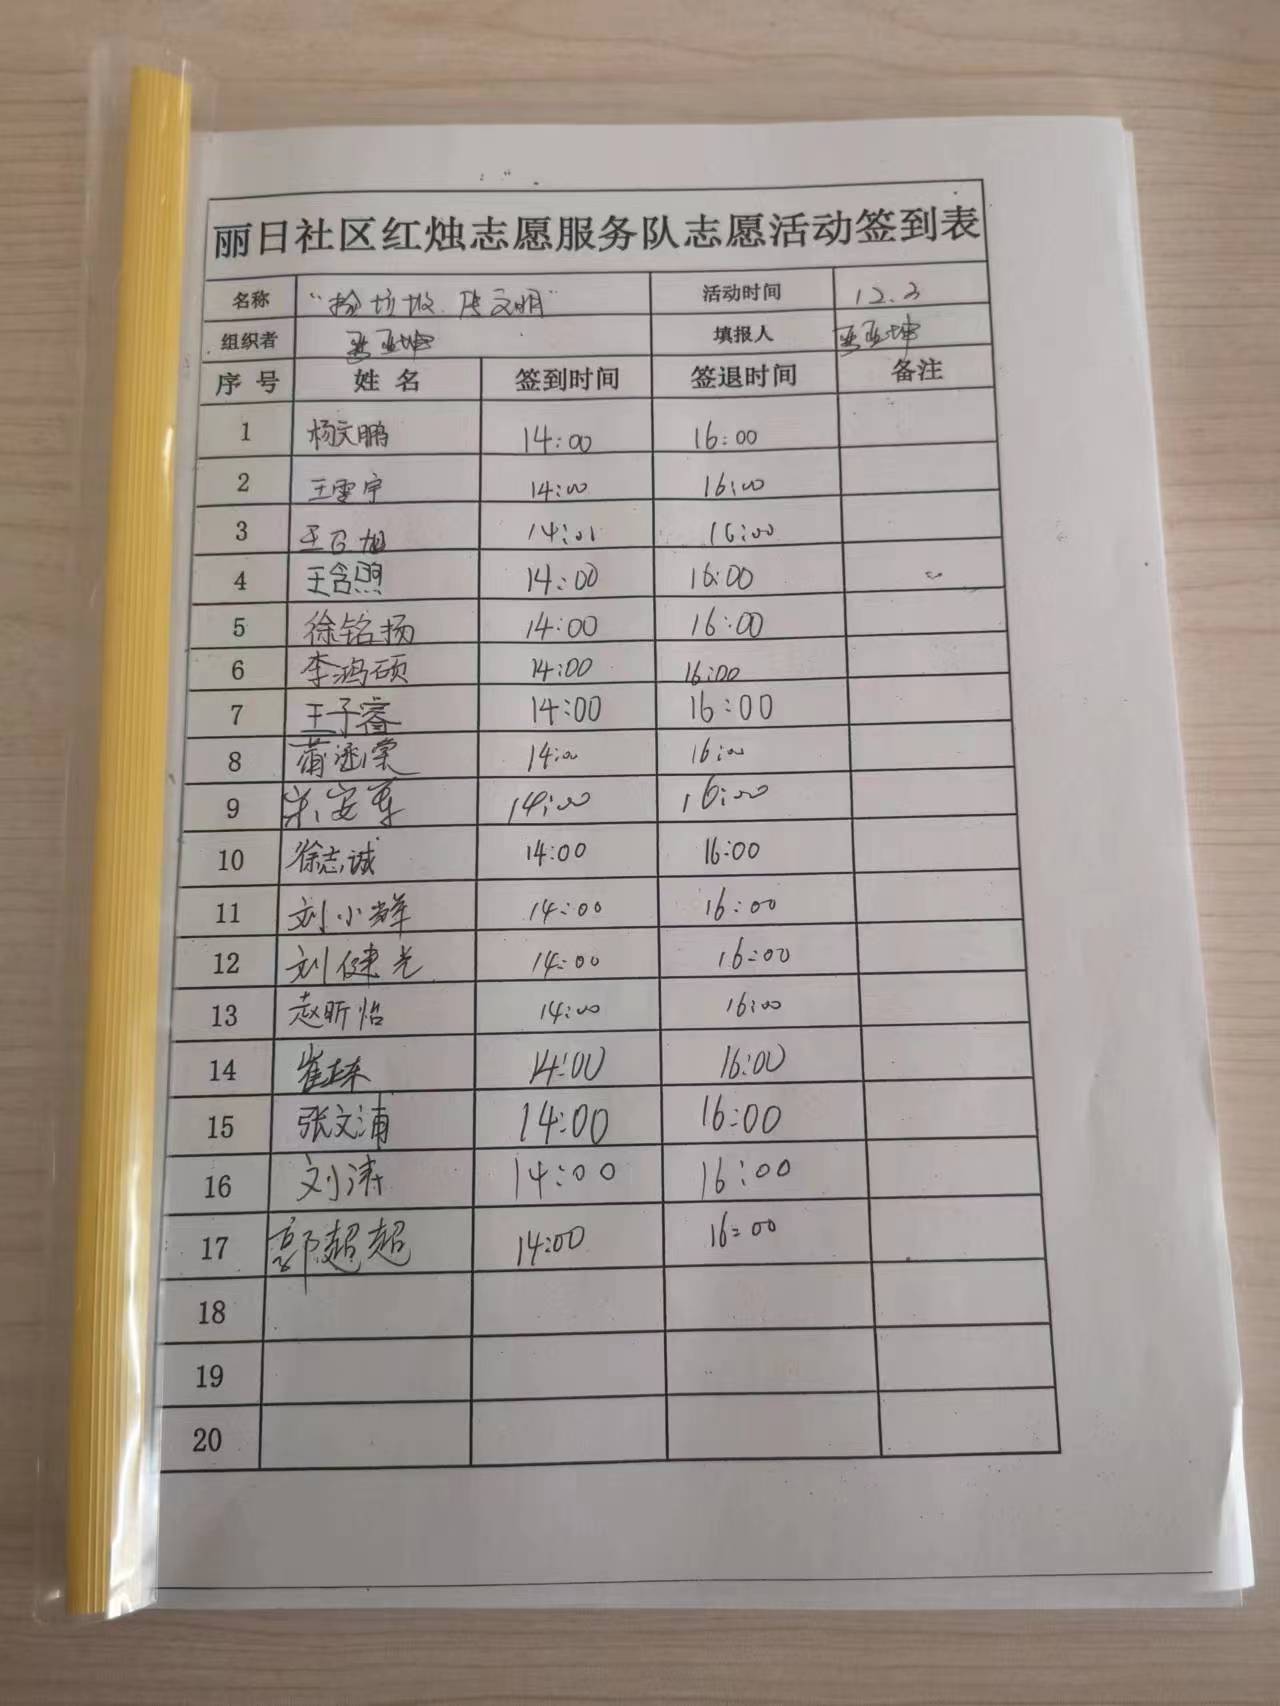 丽日社区红烛志愿服务队志愿活动签到表
名称 "捡垃圾 文明" 活动时间 12.3
组织者 亚坤 填报人 亚坤
序号 姓名 签到时间 签退时间 备注
1 杨文鹏 14:00 16:00
2 王雷宇 14:00 16:00
3 王 旭 14:01 16:00
4 王含照 14:00 16:00
5 徐铭扬 14:00 16:00
6 李鸿硕 14:00 16:00
7 王子睿 14:00 16:00
8 14:00 16:00
9 14:00 16:00
10 徐志诚 14:00 16:00
11 刘小辉 14:00 16:00
12 刘健光 14:00 16:00
13 赵昕怡 14:00 16:00
14 崔 14:00 16:00
15 张文浦 14:00 16:00
16 刘涛 14:00 16:00
17 郭超超 14:00 16:00
18
19
20